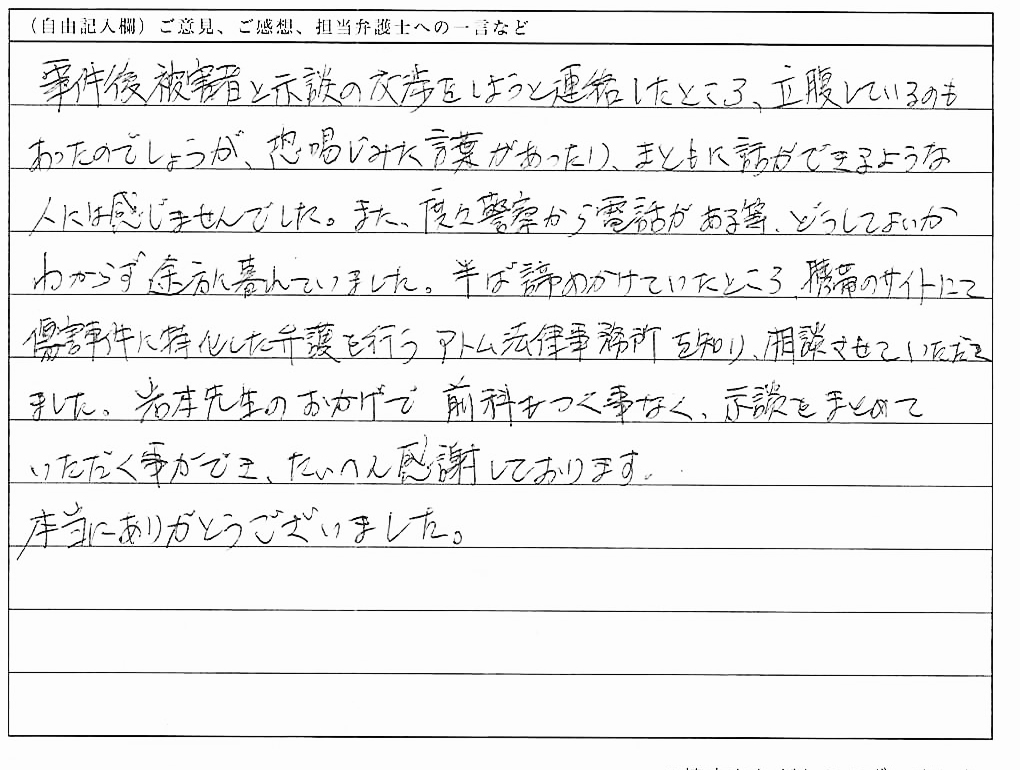 （自由記入欄）ご意見、ご感想、担当弁護士への一言など
事件後被害者と示談の交渉をしようと連絡したところ、立腹しているのも
あったのでしょうが、恐喝じみた言葉があったり、まともに話ができるような
人には感じませんでした。また、度々警察から電話がある等、どうしてよいか
わからず途方に暮れていました。半ば諦めかけていたところ、携帯のサイトにて
傷害事件に特化した弁護を行うアトム法律事務所を知り、相談させていただき
ました。岩本先生のおかげで前科もつく事なく、示談をまとめて
いただく事ができ、たいへん感謝しております。
本当にありがとうございました。